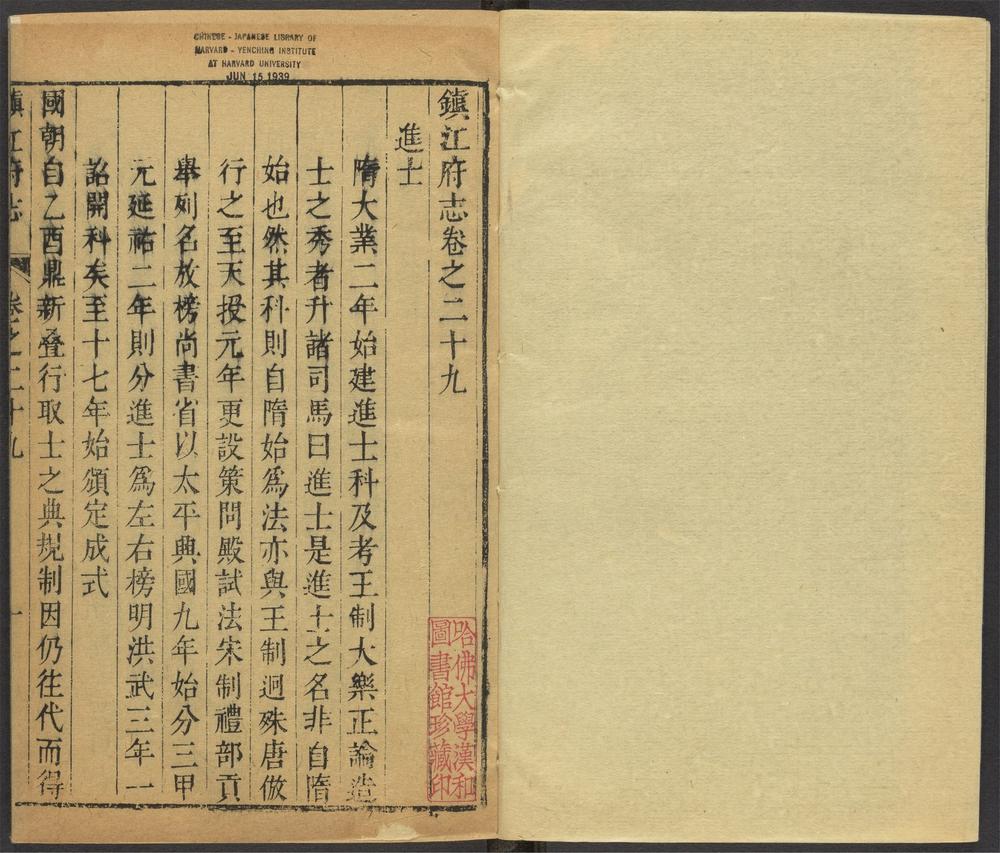 CHINESE - JAPANESE LIBRARY OF
HARVARD - YENCHING INSTITUTE
AT HARVARD UNIVERSITY
JUN 15 1939
鎮江府志卷之二十九
進士
隋大業二年始建進士科及考王制大樂正論造
士之秀者升諸司馬曰進士是進士之名非自隋
始也然其科則自隋始爲法亦與王制迥殊唐倣
行之至天授元年更設策問殿試法宋制禮部貢
舉列名放榜尚書省以太平興國九年始分三甲
元延祐二年則分進士爲左右榜明洪武三年一
詔開科矣至十七年始頒定成式
國朝自乙酉鼎新叠行取士之典規制因仍往代而得
鎮江府志 卷之二十九 一
哈佛大學漢和
圖書館珍藏印